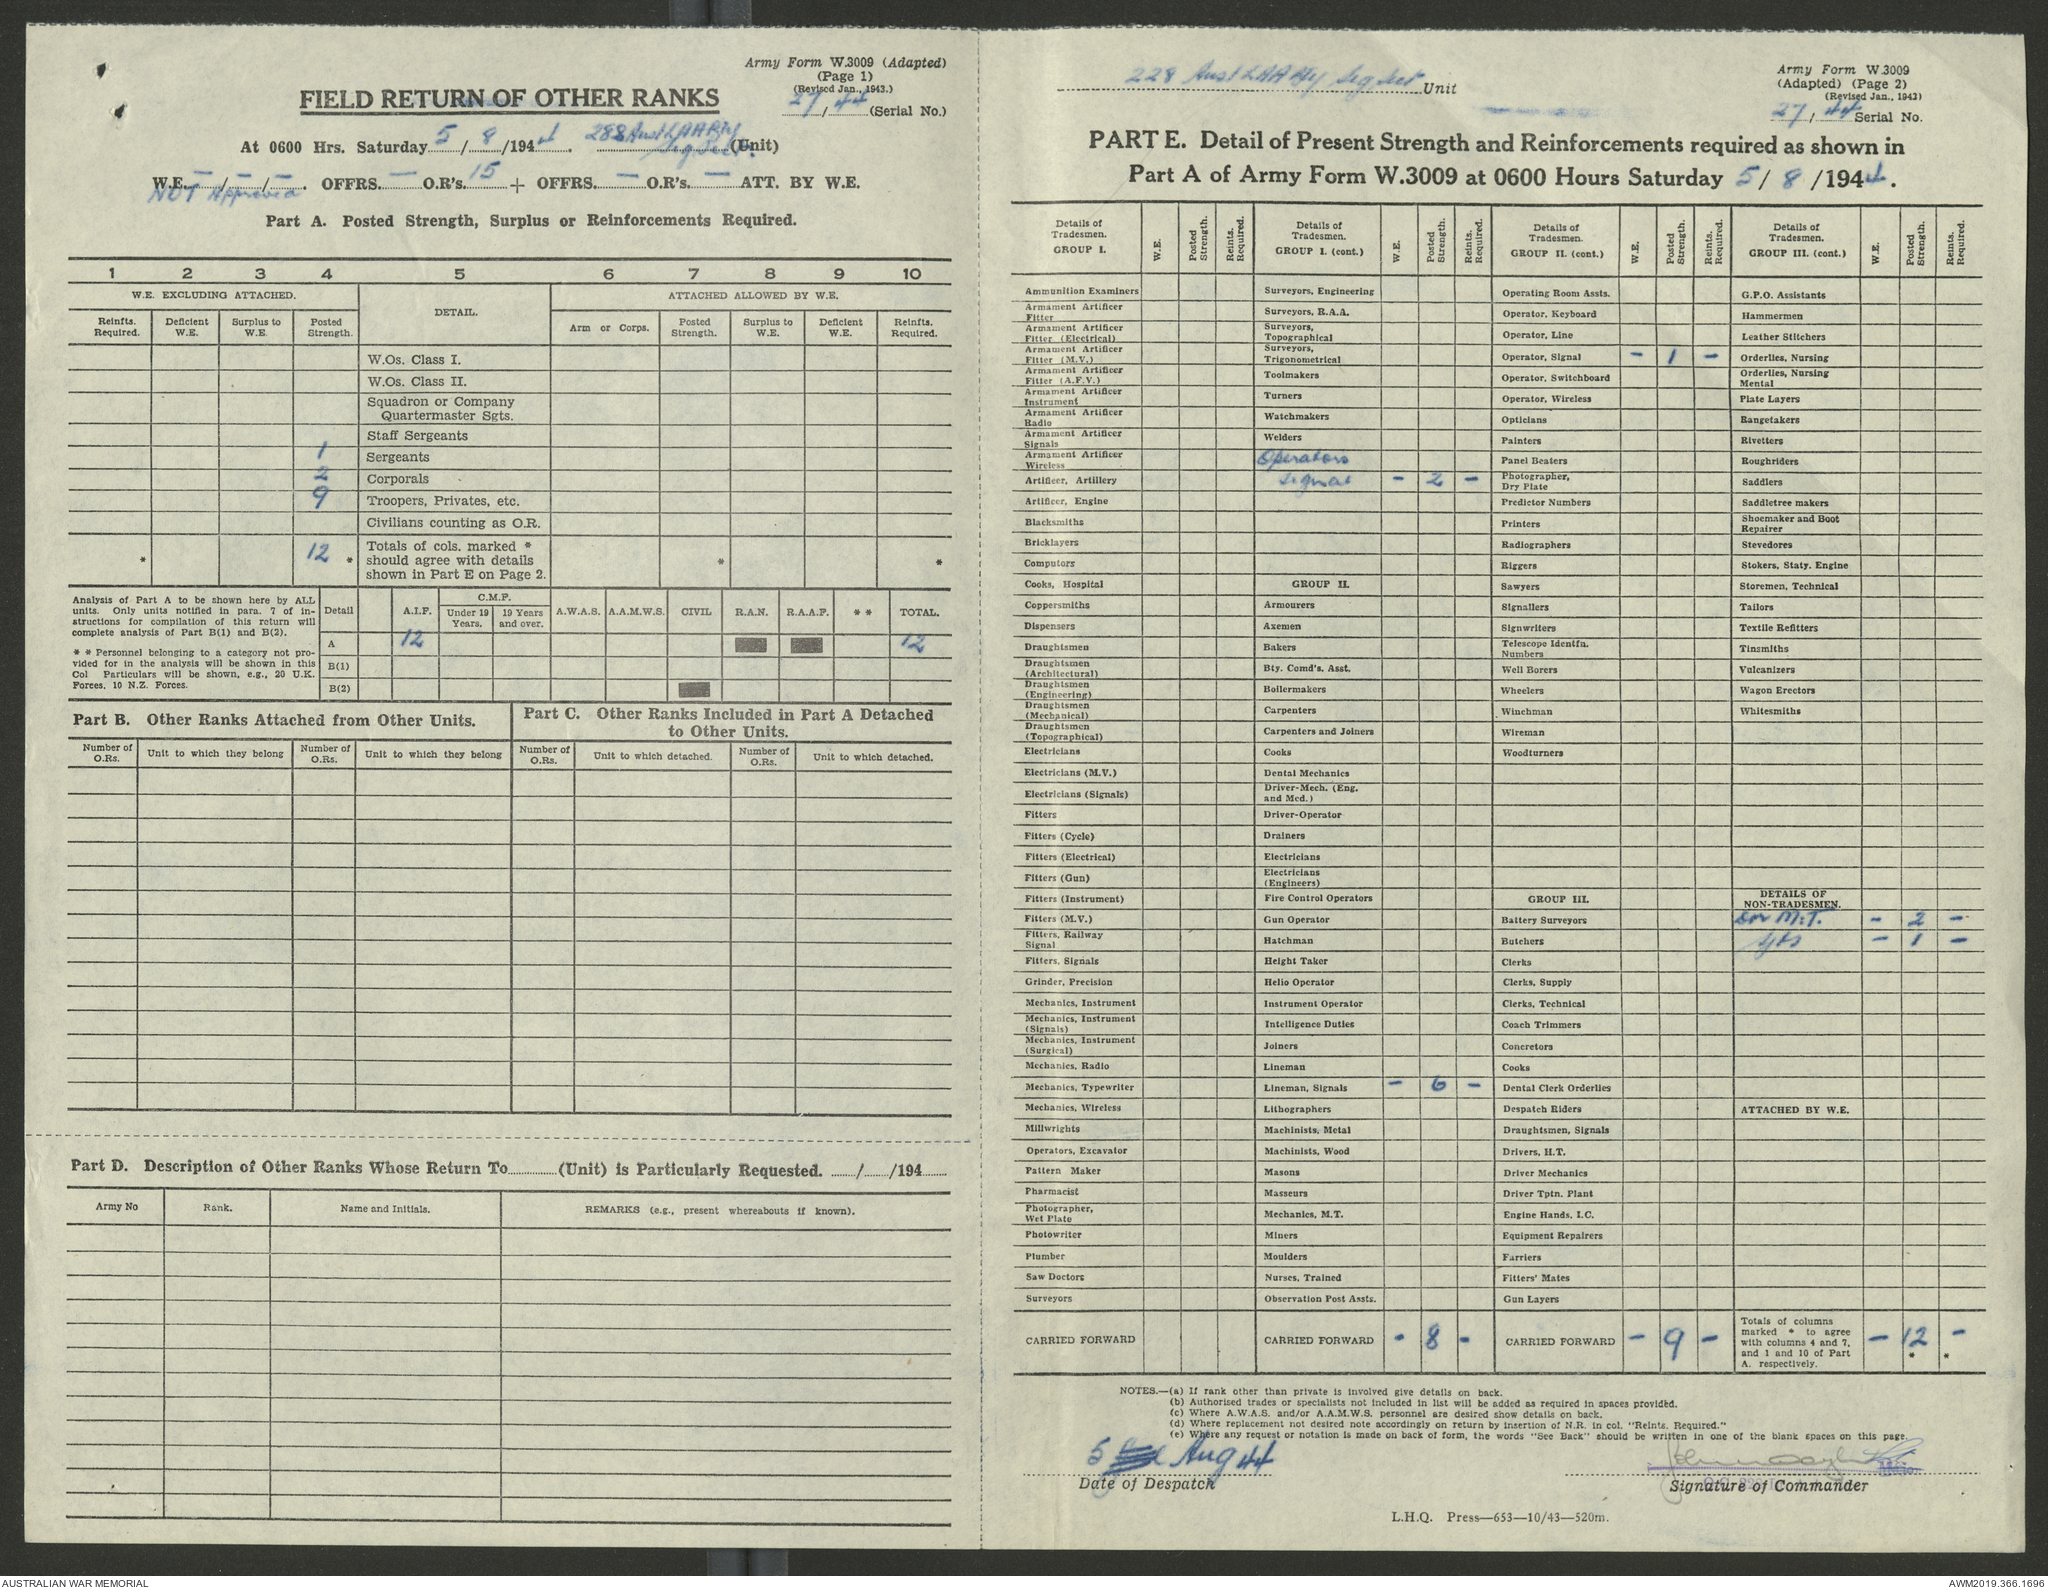 Army Form W.3009 (Adapted)
(Page 1)
(Revised Jan., 1943.)
27/44 (Serial No.)
FIELD RETURN OF OTHER RANKS
At 0600 Hrs. Saturday 5/8/1944. 288 Aust LAA Bty Sig Sect. (Unit)
W.E. –/–/–. OFFRS. – O.R's. 15 + OFFRS. – O.R's. – ATT. BY W.E.
NOT Approved
Part A. Posted Strength, Surplus or Reinforcements Required.
1 2 3 4 5 6 7 8 9 10
W.E. EXCLUDING ATTACHED. DETAIL. ATTACHED ALLOWED BY W.E.
Reinfts. Required. Deficient W.E. Surplus to W.E. Posted Strength. Arm or Corps. Posted Strength. Surplus to W.E. Deficient W.E. Reinfts. Required.
W.Os. Class I.
W.Os. Class II.
Squadron or Company Quartermaster Sgts.
Staff Sergeants
1 Sergeants
2 Corporals
9 Troopers, Privates, etc.
Civilians counting as O.R.
* 12 * Totals of cols. marked * should agree with details shown in Part E on Page 2. * *
Analysis of Part A to be shown here by ALL units. Only units notified in para. 7 of instructions for compilation of this return will complete analysis of Part B(1) and B(2).
* * Personnel belonging to a category not provided for in the analysis will be shown in this Col Particulars will be shown, e.g., 20 U.K. Forces, 10 N.Z. Forces.
Detail A.I.F. C.M.F. Under 19 Years. 19 Years and over. A.W.A.S. A.A.M.W.S. CIVIL R.A.N. R.A.A.F. * * TOTAL.
A 12 12
B(1)
B(2)
Part B. Other Ranks Attached from Other Units.
Number of O.Rs. Unit to which they belong Number of O.Rs. Unit to which they belong
Part C. Other Ranks Included in Part A Detached to Other Units.
Number of O.Rs. Unit to which detached. Number of O.Rs. Unit to which detached.
Part D. Description of Other Ranks Whose Return To (Unit) is Particularly Requested. / /194
Army No Rank. Name and Initials. REMARKS (e.g., present whereabouts if known).
228 Aust LAA Bty Sig Sect Unit
Army Form W.3009
(Adapted) (Page 2)
(Revised Jan., 1943)
27/44 Serial No.
PART E. Detail of Present Strength and Reinforcements required as shown in
Part A of Army Form W.3009 at 0600 Hours Saturday 5/8/1944.
Details of Tradesmen. GROUP I. W.E. Posted Strength. Reints. Required.
Ammunition Examiners
Armament Artificer Fitter
Armament Artificer Fitter (Electrical)
Armament Artificer Fitter (M.V.)
Armament Artificer Fitter (A.F.V.)
Armament Artificer Instrument
Armament Artificer Radio
Armament Artificer Signals
Armament Artificer Wireless
Artificer, Artillery
Artificer, Engine
Blacksmiths
Bricklayers
Computors
Cooks, Hospital
Coppersmiths
Dispensers
Draughtsmen
Draughtsmen (Architectural)
Draughtsmen (Engineering)
Draughtsmen (Mechanical)
Draughtsmen (Topographical)
Electricians
Electricians (M.V.)
Electricians (Signals)
Fitters
Fitters (Cycle)
Fitters (Electrical)
Fitters (Gun)
Fitters (Instrument)
Fitters (M.V.)
Fitters, Railway Signal
Fitters, Signals
Grinder, Precision
Mechanics, Instrument
Mechanics, Instrument (Signals)
Mechanics, Instrument (Surgical)
Mechanics, Radio
Mechanics, Typewriter
Mechanics, Wireless
Millwrights
Operators, Excavator
Pattern Maker
Pharmacist
Photographer, Wet Plate
Photowriter
Plumber
Saw Doctors
Surveyors
CARRIED FORWARD
Details of Tradesmen. GROUP I. (cont.) W.E. Posted Strength. Reints. Required.
Surveyors, Engineering
Surveyors, R.A.A.
Surveyors, Topographical
Surveyors, Trigonometrical
Toolmakers
Turners
Watchmakers
Welders
Operators
Signal – 2 –
GROUP II.
Armourers
Axemen
Bakers
Bty. Comd's. Asst.
Boilermakers
Carpenters
Carpenters and Joiners
Cooks
Dental Mechanics
Driver-Mech. (Eng. and Med.)
Driver-Operator
Drainers
Electricians
Electricians (Engineers)
Fire Control Operators
Gun Operator
Hatchman
Height Taker
Helio Operator
Instrument Operator
Intelligence Duties
Joiners
Lineman
Lineman, Signals – 6 –
Lithographers
Machinists, Metal
Machinists, Wood
Masons
Masseurs
Mechanics, M.T.
Miners
Moulders
Nurses, Trained
Observation Post Assts.
CARRIED FORWARD – 8 –
Details of Tradesmen. GROUP II. (cont.) W.E. Posted Strength. Reints. Required.
Operating Room Assts.
Operator, Keyboard
Operator, Line
Operator, Signal – 1 –
Operator, Switchboard
Operator, Wireless
Opticians
Painters
Panel Beaters
Photographer, Dry Plate
Predictor Numbers
Printers
Radiographers
Riggers
Sawyers
Signallers
Signwriters
Telescope Identfn. Numbers
Well Borers
Wheelers
Winchman
Wireman
Woodturners
GROUP III.
Battery Surveyors
Butchers
Clerks
Clerks, Supply
Clerks, Technical
Coach Trimmers
Concretors
Cooks
Dental Clerk Orderlies
Despatch Riders
Draughtsmen, Signals
Drivers, H.T.
Driver Mechanics
Driver Tptn. Plant
Engine Hands, I.C.
Equipment Repairers
Farriers
Fitters' Mates
Gun Layers
CARRIED FORWARD – 9 –
Details of Tradesmen. GROUP III. (cont.) W.E. Posted Strength. Reints. Required.
G.P.O. Assistants
Hammermen
Leather Stitchers
Orderlies, Nursing
Orderlies, Nursing Mental
Plate Layers
Rangetakers
Rivetters
Roughriders
Saddlers
Saddletree makers
Shoemaker and Boot Repairer
Stevedores
Stokers, Staty. Engine
Storemen, Technical
Tailors
Textile Refitters
Tinsmiths
Vulcanizers
Wagon Erectors
Whitesmiths
DETAILS OF NON-TRADESMEN.
Dvr M.T. – 2 –
– 1 –
ATTACHED BY W.E.
Totals of columns marked * to agree with columns 4 and 7, and 1 and 10 of Part A. respectively. – 12 * – *
NOTES.—(a) If rank other than private is involved give details on back.
(b) Authorised trades or specialists not included in list will be added as required in spaces provided.
(c) Where A.W.A.S. and/or A.A.M.W.S. personnel are desired show details on back.
(d) Where replacement not desired note accordingly on return by insertion of N.R. in col. "Reints. Required."
(e) Where any request or notation is made on back of form, the words "See Back" should be written in one of the blank spaces on this page.
5 Aug 44
Date of Despatch
Signature of Commander
L.H.Q. Press—653—10/43—520m.
AUSTRALIAN WAR MEMORIAL
AWM2019.366.1696